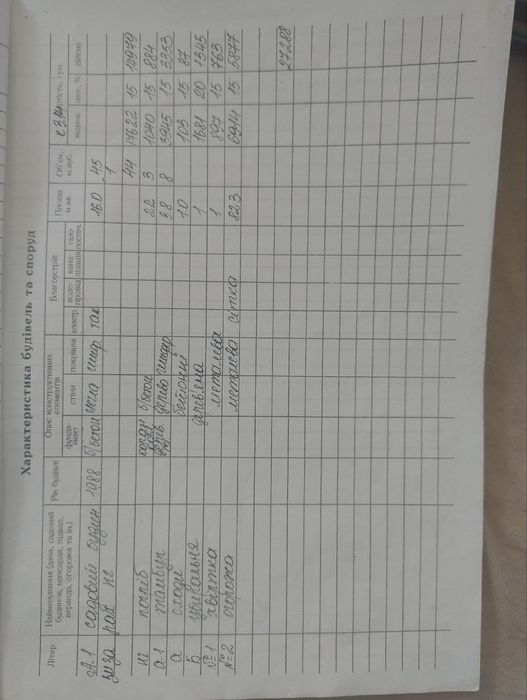 Характеристика будівель та споруд
Літер | Найменування (дача, садовий будинок, мансарда, підвал, веранда, огорожа та ін.) | Рік будівлі | Опис конструктивних елементів: фундамент, стіни, покрівля | Благоустрій: електр., водопровід, каналізація, газопостач. | Площа м.кв. | Об'єм, м.куб. | вартість, грн.: віднов. | знос, % | дійсна
А-1 садовий будин 1988 б/бетон цегла шифер так 16.0 45
1
44 17622 15 14979
пг погріб б/бетон 2.2 3 1040 15 884
а1 тамбур дерево шифер 3.8 8 3945 15 3353
а сходи бетонні 1.0 103 15 87
Б убиральня дерев'яна 1 1681 20 1345
№1 хвіртка металева 1 897 15 763
№2 огорожа металева сітка 82.3 6914 15 5877
27288